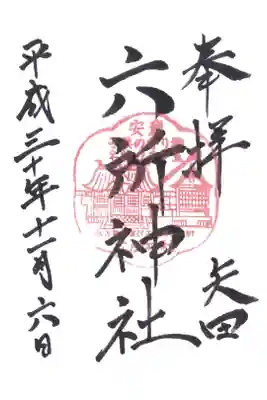 奉拝 矢田
六所神社
平成三十年十一月六日